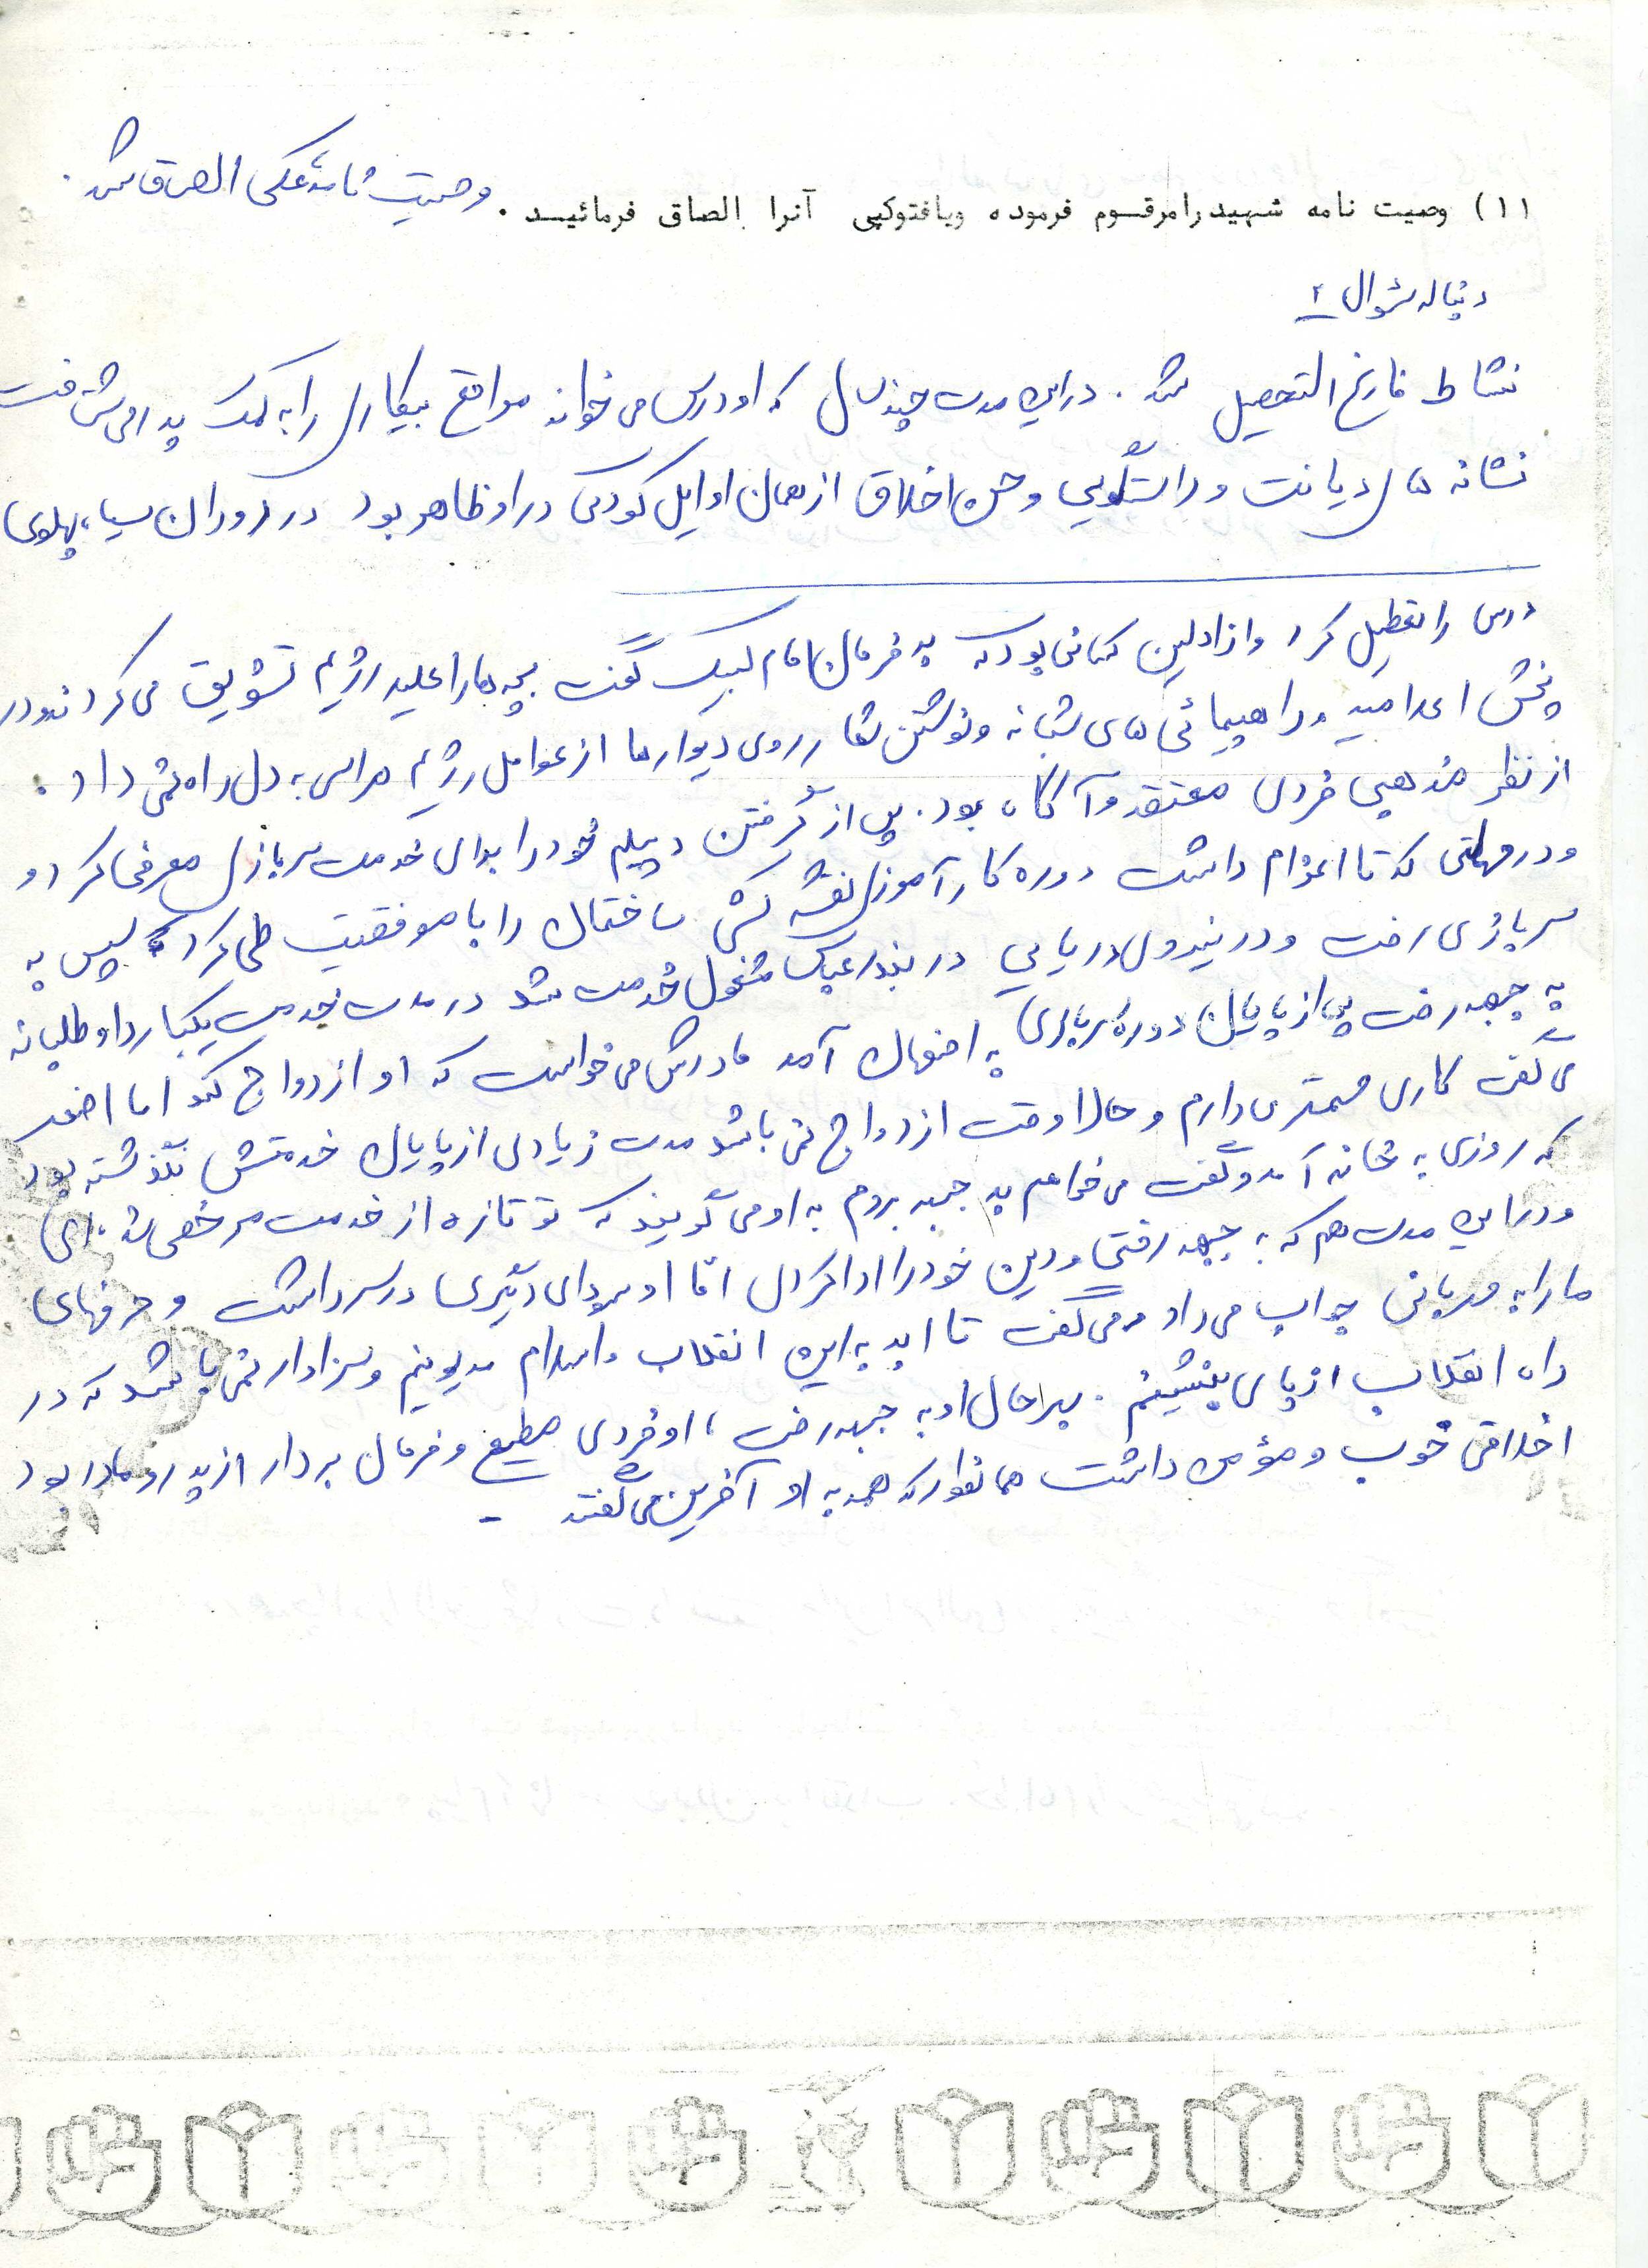 وصیت نامه عکسی الصاق شد.
۱۱) وصیت نامه شهید را مرقسوم فرموده ویا فتوکپی آنرا الصاق فرمائیسد .
دنباله سُوال ۲
نشاط فارغ التحصیل شد . در این مدت چند سال که او درس می خواند مواقع بیکاری را به کمک پدر می شتافت
نشانه های دیانت و راستگویی و حسن اخلاق از همان اوایل کودکی در او ظاهر بود در دوران سیاه پهلوی
درس را تعطیل کرد و از اولین کسانی بود که به فرمان امام لبیک گفت بچه ها را علیه رژیم تشویق می کرد و در
پخش اعلامیه و راهپیمائی های شبانه و نوشتن شعار روی دیوارها از عوامل رژیم هراسی به دل راه نمی داد .
از نظر مذهبی فردی معتقد و آگاه بود . پس از گرفتن دیپلم خود را برای خدمت سربازی معرفی کرد و
و در مهلتی که تا اعزام داشت دوره کارآموزی نقشه کشی ساختمان را با موفقیت طی کرد سپس به
سربازی رفت و در نیروی دریایی در بندر عباس مشغول خدمت شد در مدت خدمت یکبار داوطلبانه
به جبهه رفت پس از پایان دوره سربازی به اصفهان آمد مادرش می خواست که او ازدواج کند اما اصغر
می گفت کاری مهمتری دارم و حالا وقت ازدواج نمی باشد مدت زیادی از پایان خدمتش نگذشته بود
که روزی به خانه آمد و گفت می خواهم به جبهه بروم به او می گویند که تو تازه از خدمت مرخص شده ای
و در این مدت هم که به جبهه رفتی و دین خود را ادا کردی امّا او سودای دیگری در سر داشت و حرفهای
ما را به مهربانی جواب می داد و می گفت تا ابد به این انقلاب و اسلام مدیونیم و سزاوار نمی باشد که در
راه انقلاب از پای بنشینیم . بهر حال او به جبهه رفت ، او فردی مطیع و فرمان بردار از پدر و مادر بود
اخلاقی خوب و مؤمن داشت همانطور که همه به او آفرین می گفتند -